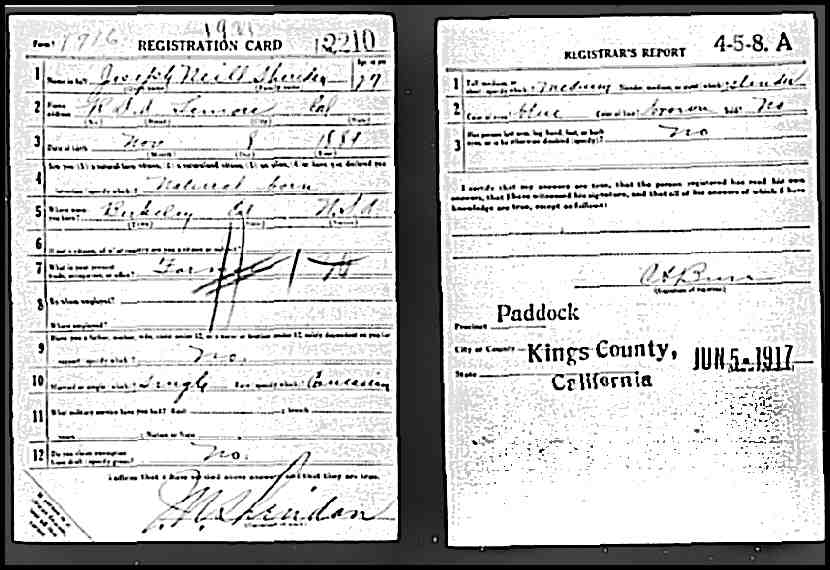 Form 1 1916 REGISTRATION CARD 2210
1 Name in full Joseph Neill Sheridan 27
(Given name) (Family name)
2 Home address Lemoore Cal
(No.) (Street) (City) (State)
3 Date of birth Nov 8 1889
(Month) (Day) (Year)
4 Are you (1) a natural-born citizen, (2) a naturalized citizen, (3) an alien, (4) or have you declared your
intention (specify which)? Natural born
5 Where were you born? Berkeley Cal U.S.A
(Town) (State) (Nation)
6 If not a citizen, of what country are you a citizen or subject?
7 What is your present trade, occupation, or office? Farmer
8 By whom employed?
Where employed?
9 Have you a father, mother, wife, child under 12, or a sister or brother under 12, solely dependent on you for
support (specify which)? No.
10 Married or single (which)? Single Race (specify which)? Caucasian
11 What military service have you had? Rank branch
years Nation or State
12 Do you claim exemption from draft (specify grounds)? No.
I affirm that I have verified above answers and that they are true.
J.N. Sheridan
REGISTRAR'S REPORT 4-5-8. A
1 Tall, medium, or short (specify which)? Medium Slender, medium, or stout (which)? Slender
2 Color of eyes? Blue Color of hair? Brown Bald? No
3 Has person lost arm, leg, hand, foot, or both eyes, or is he otherwise disabled (specify)? No
I certify that my answers are true, that the person registered has read his own
answers, that I have witnessed his signature, and that all of his answers of which I have
knowledge are true, except as follows:
(Signature of registrar)
Precinct Paddock
City or County Kings County,
State California
JUN 5 - 1917